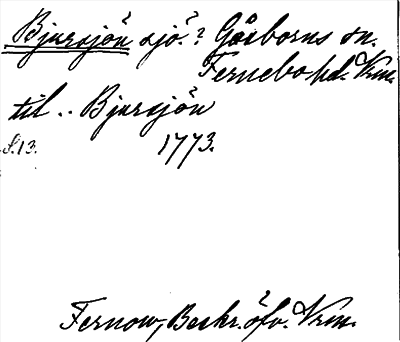 Bjursjön sjö? Gåsborns sn.
Fernebo hd. Vrm.
til .. Bjursjön
S. 13. 1773.
Fernow, Beskr. öfv. Vrm.